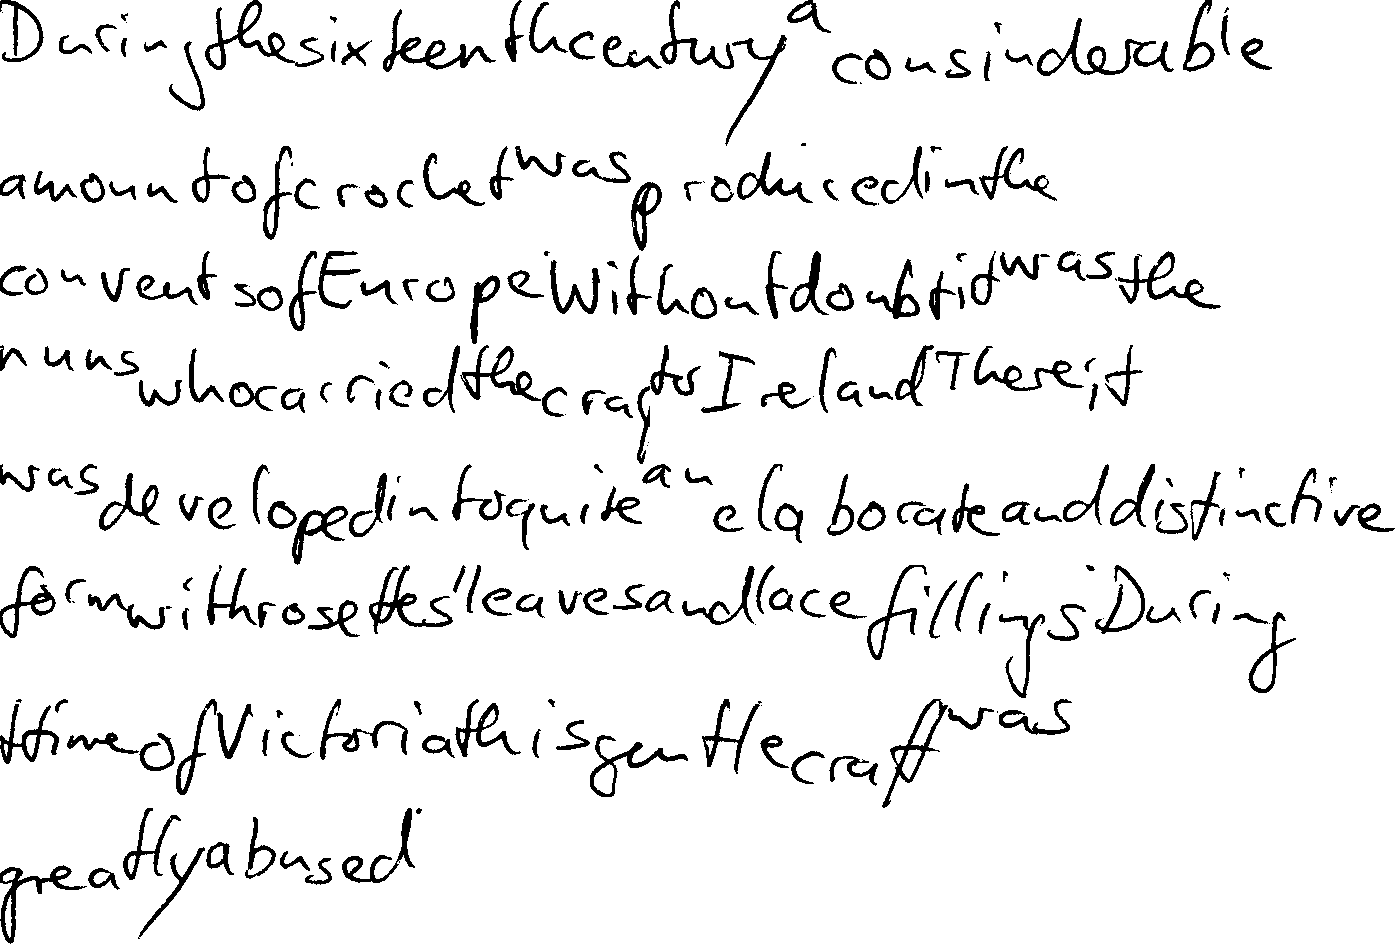 During the sixteenth century a consinderable
amount of crochet was produced in the
convents of Europe. Without doubt it was the
nuns who carried the craft to Ireland. There, it
was developed into quite an elaborate and distinctive
form with rosettes, leaves and lace fillings. During
ttime of Victoria this gentle craft was
greatly abused